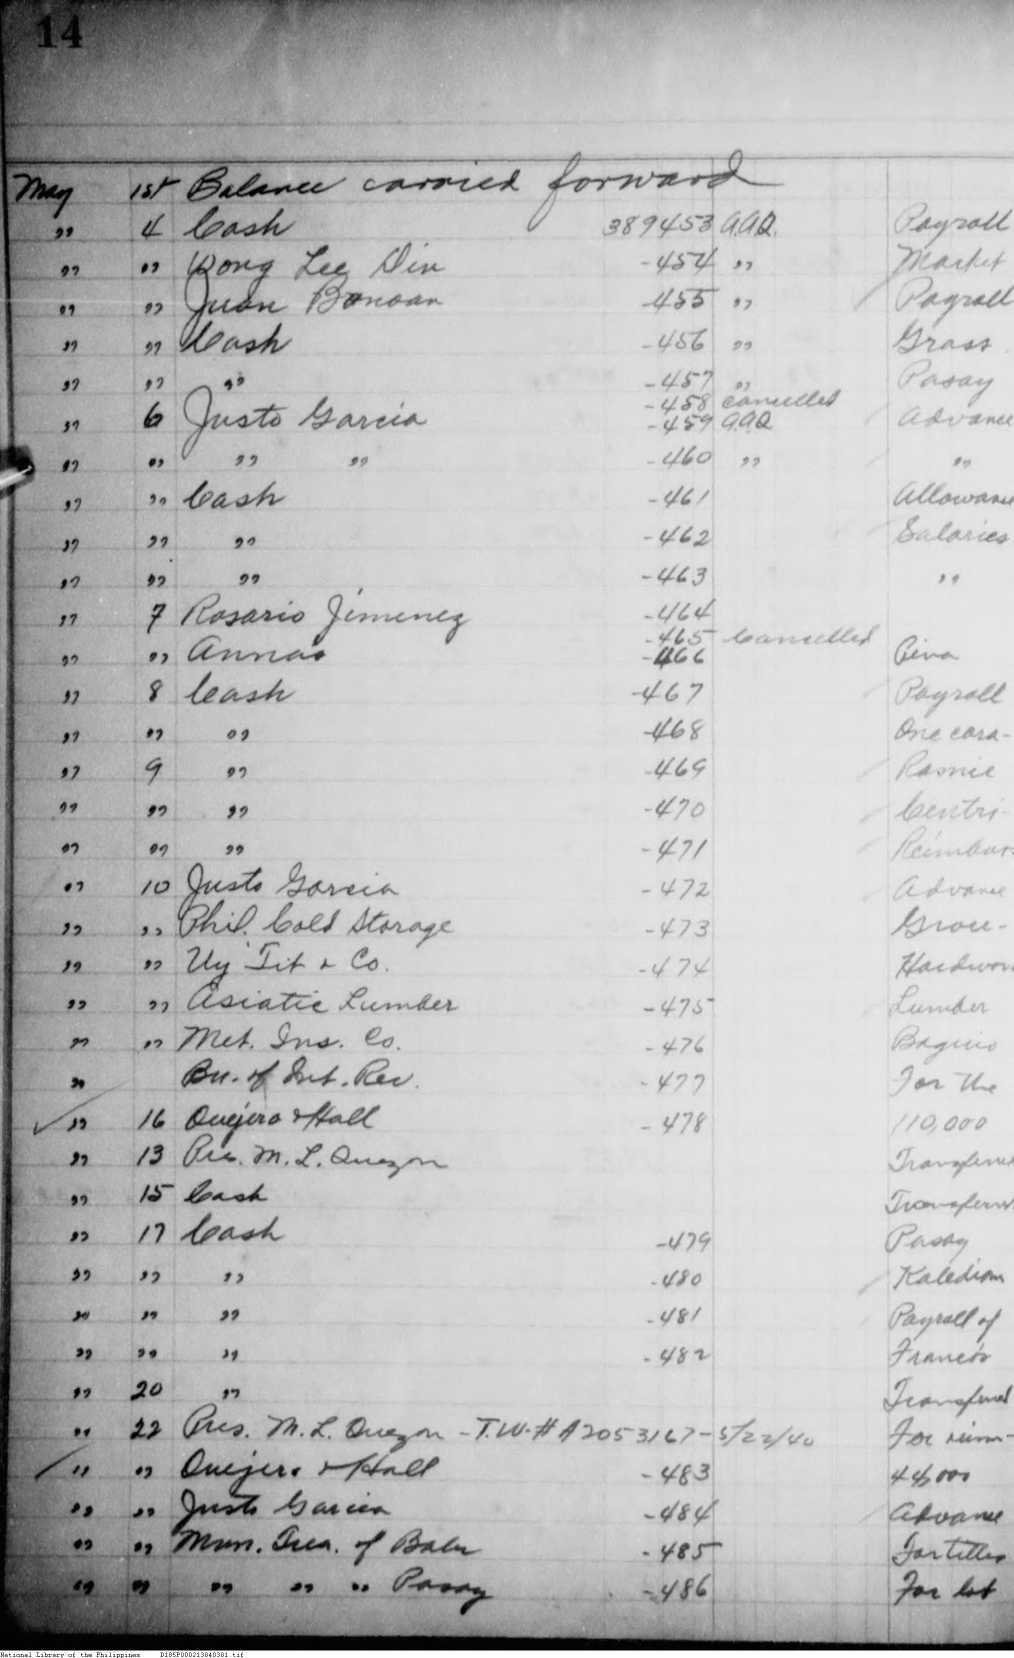 14
May 1st Balance carried forward
" 4 Cash 389453 A.A.Q. Payroll
" " Wong Lee Din -454 " Market
" " Juan Bonoan -455 " Payroll
" " Cash -456 " Grass
" " " -457 " Pasay
-458 Cancelled
" 6 Justo Garcia -459 A.A.Q. Advance
" " " " -460 " "
" " Cash -461 Allowance
" " " -462 Salaries
" " " -463 "
" 7 Rosario Jimenez -464
-465 Cancelled
" " Annas -466
" 8 Cash -467 Payroll
" " " -468 One cara-
" 9 " -469 Ramie
" " " -470 Centri-
" " " -471 Reimburs
" 10 Justo Garcia -472 Advance
" " Phil. Cold Storage -473 Groce-
" " Uy Tit & Co. -474 Hardware
" " Asiatic Lumber -475 Lumber
" " Met. Ins. Co. -476 Baguio
" Bu. of Int. Rev. -477 For the
" 16 Quejero & Hall -478 110,000
" 13 Pres. M. L. Quezon Transferred
" 15 Cash Transferred
" 17 Cash -479 Pasay
" " " -480
" " " -481 Payroll of
" " " -482 Francis
" 20 " Transferred
" 22 Pres. M. L. Quezon - T.W. # A2053167 - 5/22/40 For
" " Quejero & Hall -483 44,000
" " Justo Garcia -484 Advance
" " Mun. Trea. of Baler -485 For titles
" " " " " Pasay -486 For lot
National Library of the Philippines D185P000213040301.tif